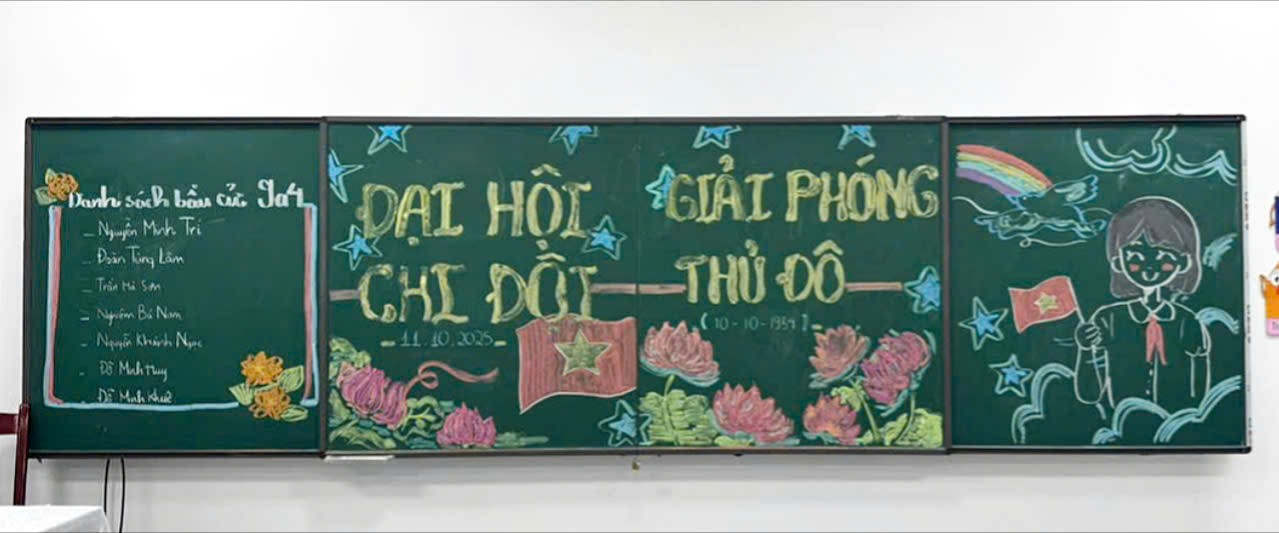 Danh sách bầu cử 9a4
- Nguyễn Minh Trí
- Đoàn Tùng Lâm
- Trần Hà Sơn
- Nghiêm Bá Nam
- Nguyễn Khánh Ngọc
- Đỗ Minh Huy
- Đỗ Minh Khuê
ĐẠI HỘI
CHI ĐỘI
11.10.2025
GIẢI PHÓNG
THỦ ĐÔ
(10-10-1954)